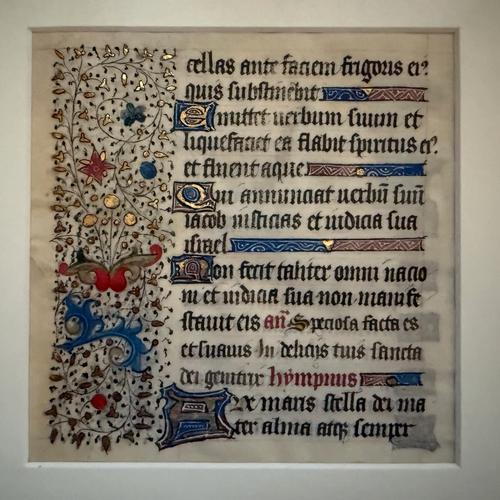 cellas ante faciem frigoris ei?
quis substinebit
Emittet uerbum suum et
liquefaciet ea flabit spiritus ei?.
et fluent aque
Qui annunciat uerbū suū
iacob iusticias et iudicia sua
israel
Non fecit taliter omni nacio
ni et iudicia sua non manife
stauit eis an̄ Speciosa facta es
et suauis In delicijs tuis sancta
dei genitrix hympnus
Aue maris stella dei ma
ter alma atqꝫ semper